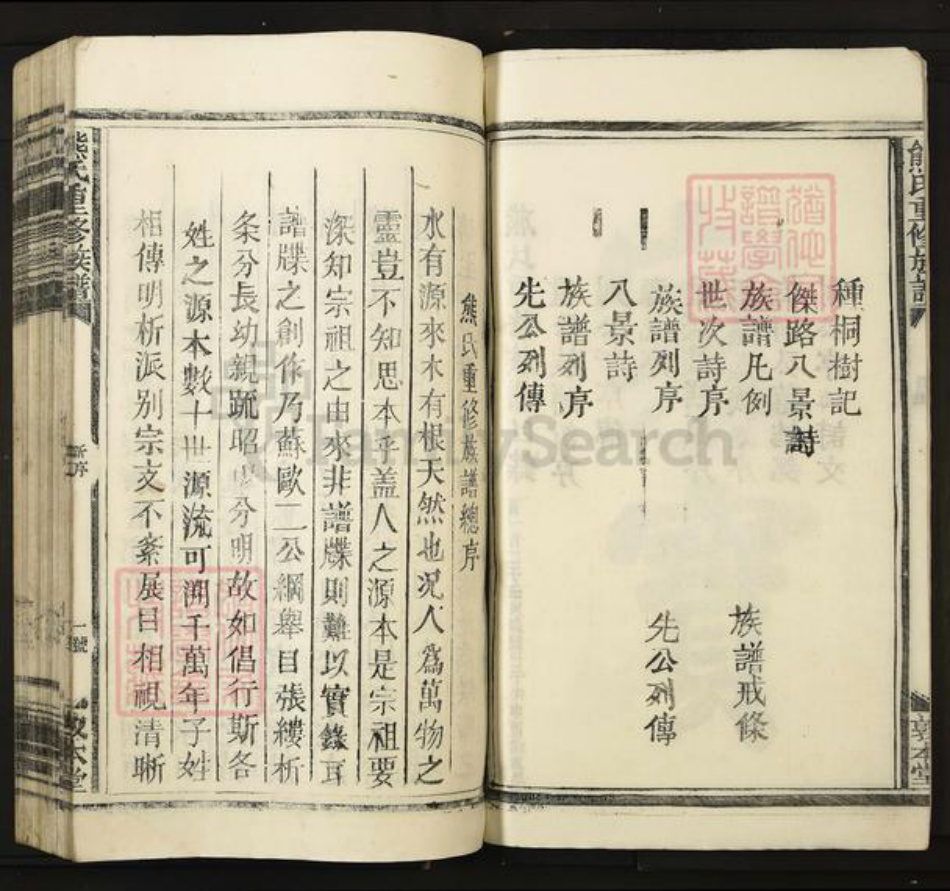 熊氏重修族譜
種桐樹記
傑路八景詩
族譜凡例
族譜戒條
世次詩序
族譜列序
先公列傳
八景詩
族譜列序
先公列傳
敦本堂
熊氏重修族譜總序
水有源來木有根天然也况人爲萬物之
靈豈不知思本乎蓋人之源本是宗祖要
深知宗祖之由來非譜牒則難以實錄耳
譜牒之創作乃蘇歐二公綱舉目張縷析
条分長幼親疏昭 分明故如倡行斯各
姓之源本數十世源流可溯千萬年子姓
相傳明析派别宗支不紊展目相視清晣
熊氏重修族譜
新序
一號
敦本堂
FamilySearch